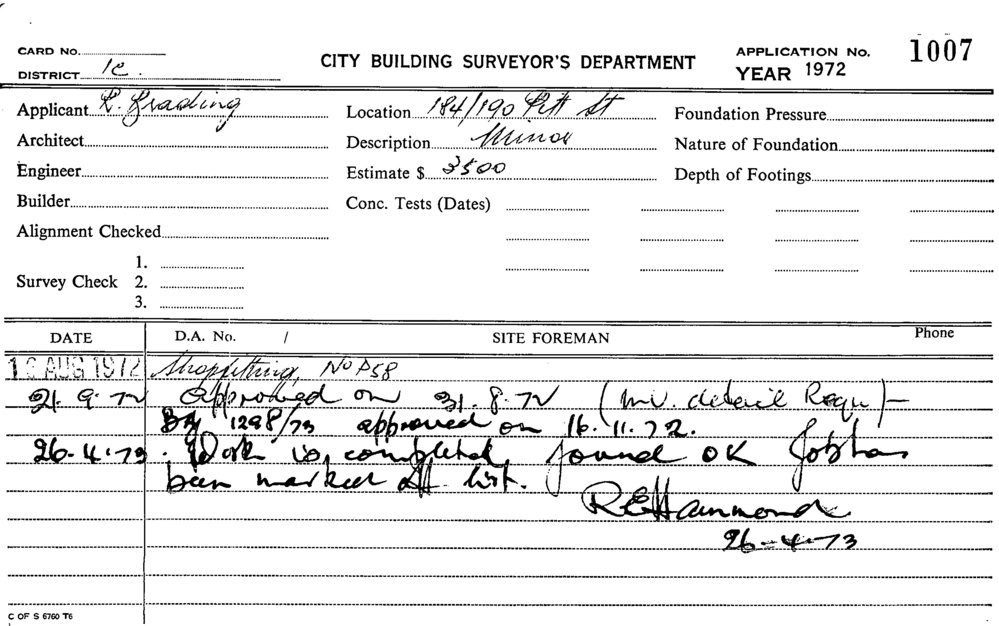 CARD No.
DISTRICT 1C.
CITY BUILDING SURVEYOR'S DEPARTMENT
APPLICATION No. 1007
YEAR 1972
Applicant
Location 184/190 Pitt St
Foundation Pressure
Architect
Description Minor
Nature of Foundation
Engineer
Estimate $ 3500
Depth of Footings
Builder
Conc. Tests (Dates)
Alignment Checked
1.
Survey Check 2.
3.
DATE D.A. No. / SITE FOREMAN Phone
AUG 1972 Shopfitting, No
21. 9. 72 approved on 31. 8. 72 ( detail Requ)
1298/73 approved on 16. 11. 72.
26-4-73. Work is completed, found OK Job has
been marked off list.
R E Hammond
26-4-73
C OF S 6760 T6